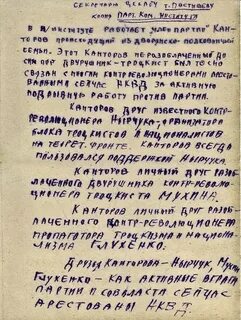 СЕКРЕТАРЮ ЦК КП(б)У т. ПОСТЫШЕВУ
КОПИЯ ПАРТ. КОМ. ИНСТИТУТА
В ИНСТИТУТЕ РАБОТАЕТ ЧЛЕН ПАРТИИ КАН-
ТОРОВ ПРОИСХОДИТ ИЗ ДВОРЯНСКО-ПОЛКОВНИЧЬЕЙ
СЕМЬИ. ЭТОТ КАНТОРОВ НЕРАЗОБЛАЧЕННЫЙ ДО
СИХ ПОР ДВУРУШНИК-ТРОЦКИСТ БЫЛ ТЕСНО
СВЯЗАН С МНОГИМИ КОНТРРЕВОЛЮЦИОНЕРАМИ АРЕСТО-
ВАННЫМИ СЕЙЧАС НКВД ЗА АКТИВНУЮ
ПОДРЫВНУЮ РАБОТУ ПРОТИВ ПАРТИИ.
КАНТОРОВ ДРУГ ИЗВЕСТНОГО КОНТР-
РЕВОЛЮЦИОНЕРА НЫРЧУКА-ОРГАНИЗАТОРА
БЛОКА ТРОЦКИСТОВ И НАЦИОНАЛИСТОВ
НА ТЕОРЕТ. ФРОНТЕ. КАНТОРОВ ВСЕГДА
ПОЛЬЗОВАЛСЯ ПОДДЕРЖКОЙ НЫРЧУКА
КАНТОРОВ ЛИЧНЫЙ ДРУГ РАЗОБ-
ЛАЧЕННОГО ДВУРУШНИКА КОНТР-РЕВОЛЮ-
ЦИОНЕРА ТРОЦКИСТА МУХИНА.
КАНТОРОВ ЛИЧНЫЙ ДРУГ РАЗОБ-
ЛАЧЕННОГО КОНТР-РЕВОЛЮЦИОНЕРА
ПРОПАГАТОРА ТРОЦКИЗМА И НАЦИОНА-
ЛИЗМА ГЛУХЕНКО.
ДРУЗЬЯ КАНТОРОВА-НЫРЧУК МУХИН
ГЛУХЕНКО - КАК АКТИВНЫЕ ВРАГИ
ПАРТИИ И СОВВЛАСТИ СЕЙЧАС
АРЕСТОВАНЫ НКВД.